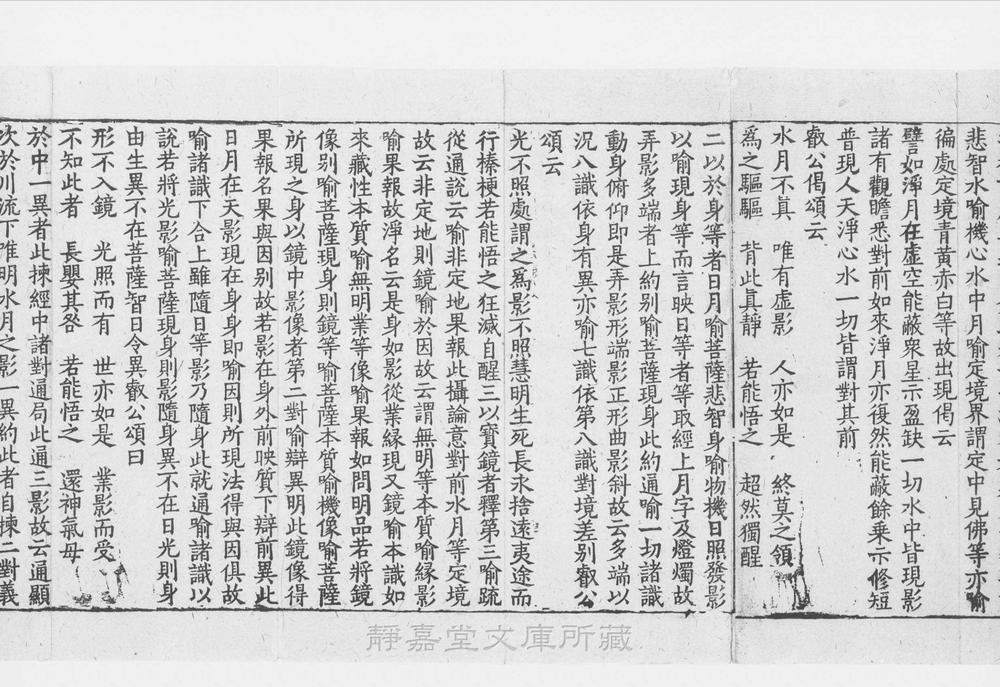 悲智水喻機心水中月喻定境界謂定中見佛等亦喻
徧處定境青黃赤白等故出現偈云
譬如淨月在虛空能蔽衆星示盈缺一切水中皆現影
諸有觀瞻悉對前如來淨月亦復然能蔽餘乘示修短
普現人天淨心水一切皆謂對其前
叡公偈頌云
水月不真 唯有虛影 人亦如是 終莫之領
爲之驅驅 背此真靜 若能悟之 超然獨醒
二以於身等者日月喻菩薩悲智身喻物機日照發影
以喻現身等而言映日等者等取經上月字及燈燭故
弄影多端者上約別喻菩薩現身此約通喻一切諸識
動身俯仰即是弄影形端影正形曲影斜故云多端以
況八識依身有異亦喻七識依第八識對境差別叡公
頌云
光不照處謂之爲影不照慧明生死長永捨遠夷途而
行榛梗若能悟之狂滅自醒三以寶鏡者釋第三喻疏
從通說云喻非定地果報此攝論意對前水月等定境
故云非定地則鏡喻於因故云謂無明等本質喻緣影
喻果報故淨名云是身如影從業緣現又鏡喻本識如
來藏性本質喻無明業等像喻果報如問明品若將鏡
像別喻菩薩現身則鏡等喻菩薩本質喻機像喻菩薩
所現之身以鏡中影像者第二對喻辯異明此鏡像得
果報名果與因別故若影在身外前映質下辯前異此
日月在天影現在身身即喻因則所現法得與因俱故
喻諸識下合上雖隨日等影乃隨身此就通喻諸識以
說若將光影喻菩薩現身則影隨身異不在日光則身
由生異不在菩薩智日令異叡公頌曰
形不入鏡 光照而有 世亦如是 業影而受
不知此者 長嬰其咎 若能悟之 還神氣母
於中一異者此揀經中諸對通局此通三影故云通顯
次於川流下唯明水月之影一異約此者自揀二對義
靜嘉堂文庫所藏